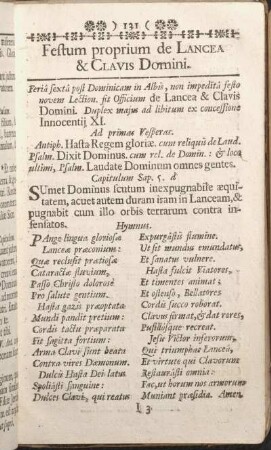 ) 131 (
Festum proprium de LANCEA
& CLAVIS Domini.
Feriâ sextâ post Dominicam in Albis, non impeditâ festo
novem Lection. fit Officium de Lancea & Clavis
Domini. Duplex majus ad libitum ex concessione
Innocentij XI.
Ad primas Vesperas.
Antiph. Hasta Regem gloriæ. cum reliquis de Laud.
Psalm. Dixit Dominus. cum rel. de Domin. & loco
ultimi, Psalm. Laudate Dominum omnes gentes.
Capitulum Sap. 5. d
SUmet Dominus scutum inexpugnabile æqui-
tatem, acuet autem duram iram in Lanceam, &
pugnabit cum illo orbis terrarum contra in-
sensatos.
Hymnus.
PAnge lingua gloriosæ
Lanceæ præconium:
Quæ reclusit pratiosæ
Cataractæ fluvium,
Passo Christo dolorosè
Pro salute gentium.
Hasta gazis præoptata
Mundi pandit pretium:
Cordis tactu præparata
Fit sagitta fortium:
Arma Clavi sunt beata
Contra vires Dæmonum.
Dulcis Hasta Dei latus
Spoliâsti sanguine:
Dulces Clavi, qui reatus
Expurgâstis flumine.
Ut sit mundus emundatus,
Et sanatus vulnere.
Hasta fulcit Viatores,
Et timentes animat;
Et olciuso, Bellatores
Cordis succo roborat.
Clavus firmat, & dat rores,
Pusillosque recreat.
Jesu Victor infervorum,
Qui triumphas Lanceâ,
Et virtute qui Clavorum
Restaurâsti omnia:
Fac, ut horum nos armorum
Muniant præsidia. Amen.
I 3